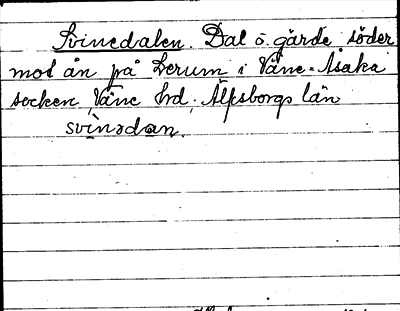 Svinedalen. Dal o. gärde söder
mot ån på Lerum i Väne-Åsaka
socken Väne hd. Älfsborgs län
svinədan.